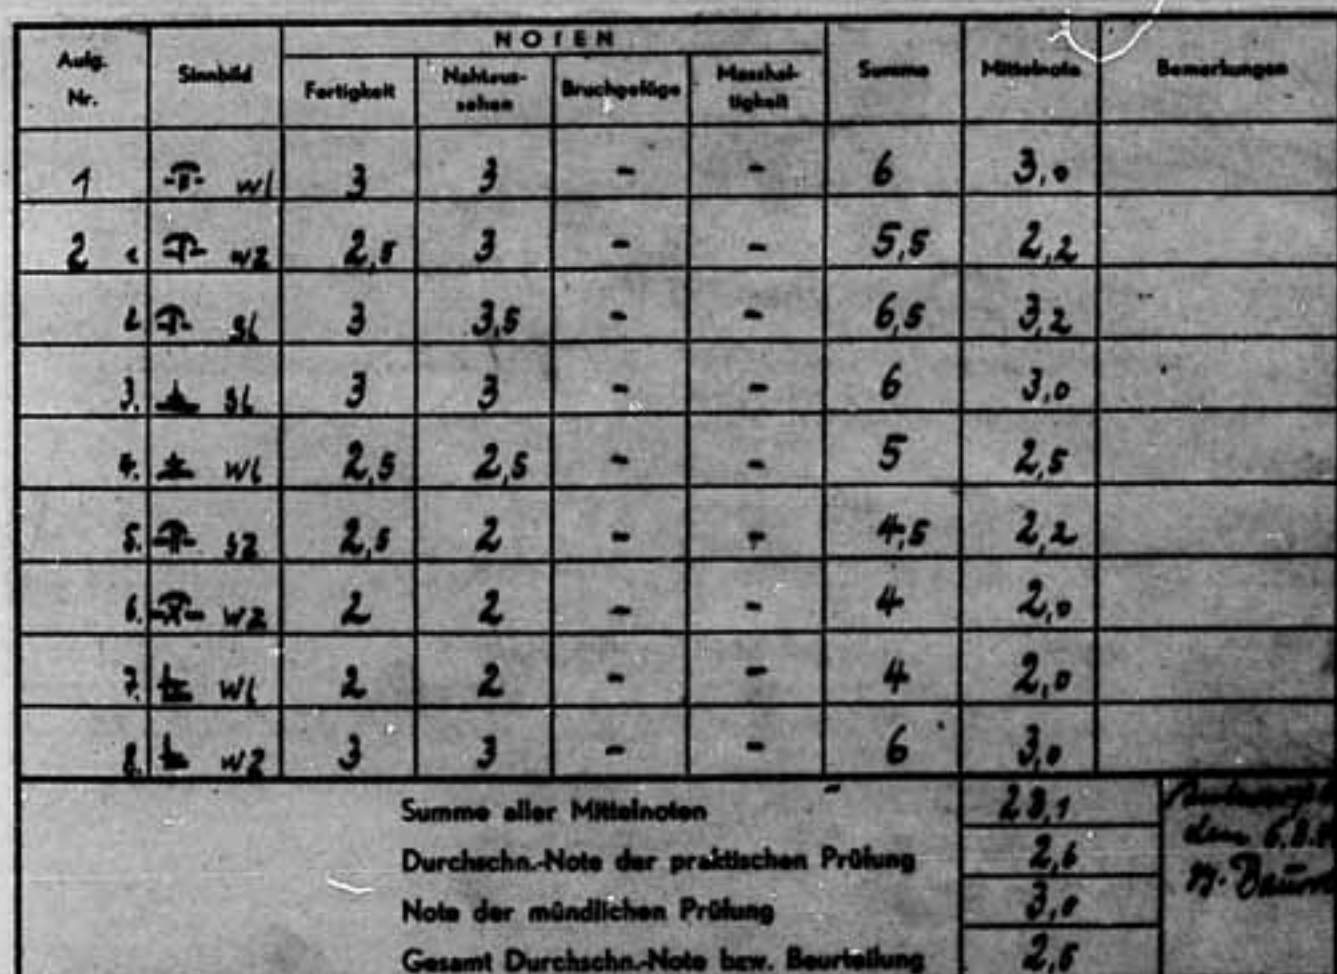 NOTEN
Aufg. Nr. Sinnbild Fertigkeit Nahtaus-sehen Bruchgefüge Masshal-tigkeit Summe Mittelnote Bemerkungen
1 wl 3 3 - - 6 3,0
2 wz 2,5 3 - - 5,5 2,2
sl 3 3,5 - - 6,5 3,2
3. sl 3 3 - - 6 3,0
4. wl 2,5 2,5 - - 5 2,5
5. sz 2,5 2 - - 4,5 2,2
6. wz 2 2 - - 4 2,0
7. wl 2 2 - - 4 2,0
8. wz 3 3 - - 6 3,0
Summe aller Mittelnoten 23,1
Durchschn.-Note der praktischen Prüfung 2,6 den
Note der mündlichen Prüfung 3,0
Gesamt Durchschn.-Note bzw. Beurteilung